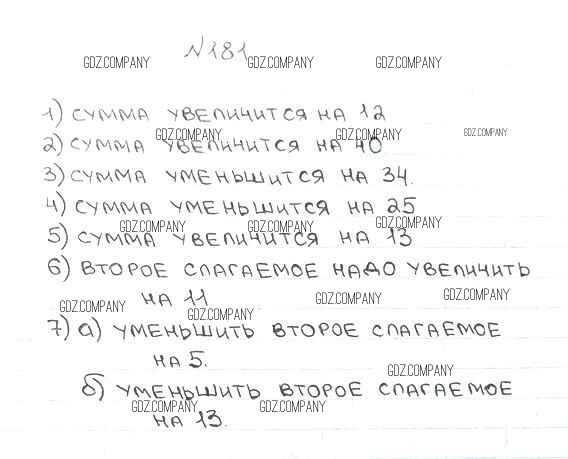 №181
GDZ.COMPANY GDZ.COMPANY GDZ.COMPANY
1) СУММА УВЕЛИЧИТСЯ НА 12
GDZ.COMPANY GDZ.COMPANY GDZ.COMPANY
2) СУММА УВЕЛИЧИТСЯ НА 40
3) СУММА УМЕНЬШИТСЯ НА 34.
4) СУММА УМЕНЬШИТСЯ НА 25
GDZ.COMPANY GDZ.COMPANY GDZ.COMPANY
5) СУММА УВЕЛИЧИТСЯ НА 13
6) ВТОРОЕ СЛАГАЕМОЕ НАДО УВЕЛИЧИТЬ
НА 11
GDZ.COMPANY GDZ.COMPANY GDZ.COMPANY GDZ.COMPANY
7) а) УМЕНЬШИТЬ ВТОРОЕ СЛАГАЕМОЕ
НА 5.
GDZ.COMPANY
б) УМЕНЬШИТЬ ВТОРОЕ СЛАГАЕМОЕ
GDZ.COMPANY GDZ.COMPANY
НА 13.